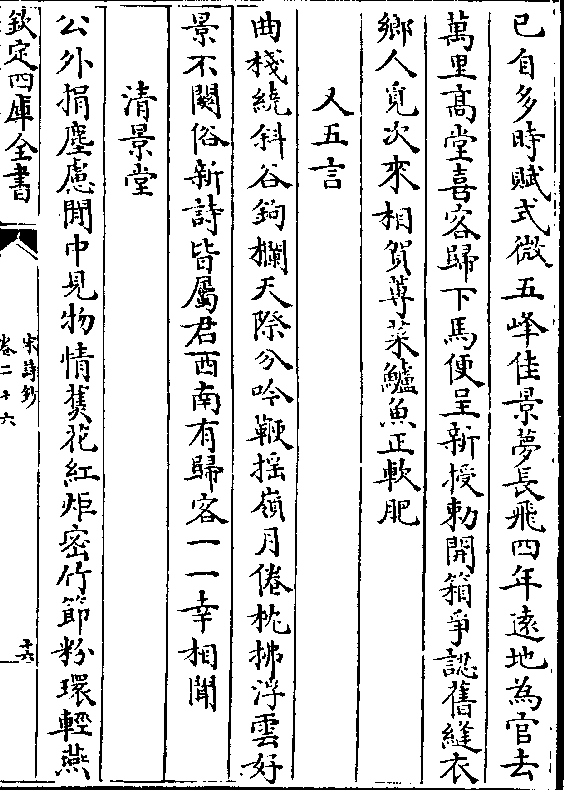 已自多時賦式微五峰佳景夢長飛四年逺地為官去
萬里髙堂喜客歸下馬便呈新授勅開箱爭認舊縫衣
鄉人覓次來相賀蓴菜鱸魚正軟肥
又五言
曲棧繞斜谷鉤欄天際分吟鞭揺嶺月倦枕拂浮雲好
景不闕俗新詩皆屬君西南有歸客一一幸相聞
清景堂
公外捐塵慮閒中見物情蕉花紅炬密竹節粉環輕燕
欽定四庫全書
宋詩鈔
卷二十六
十六